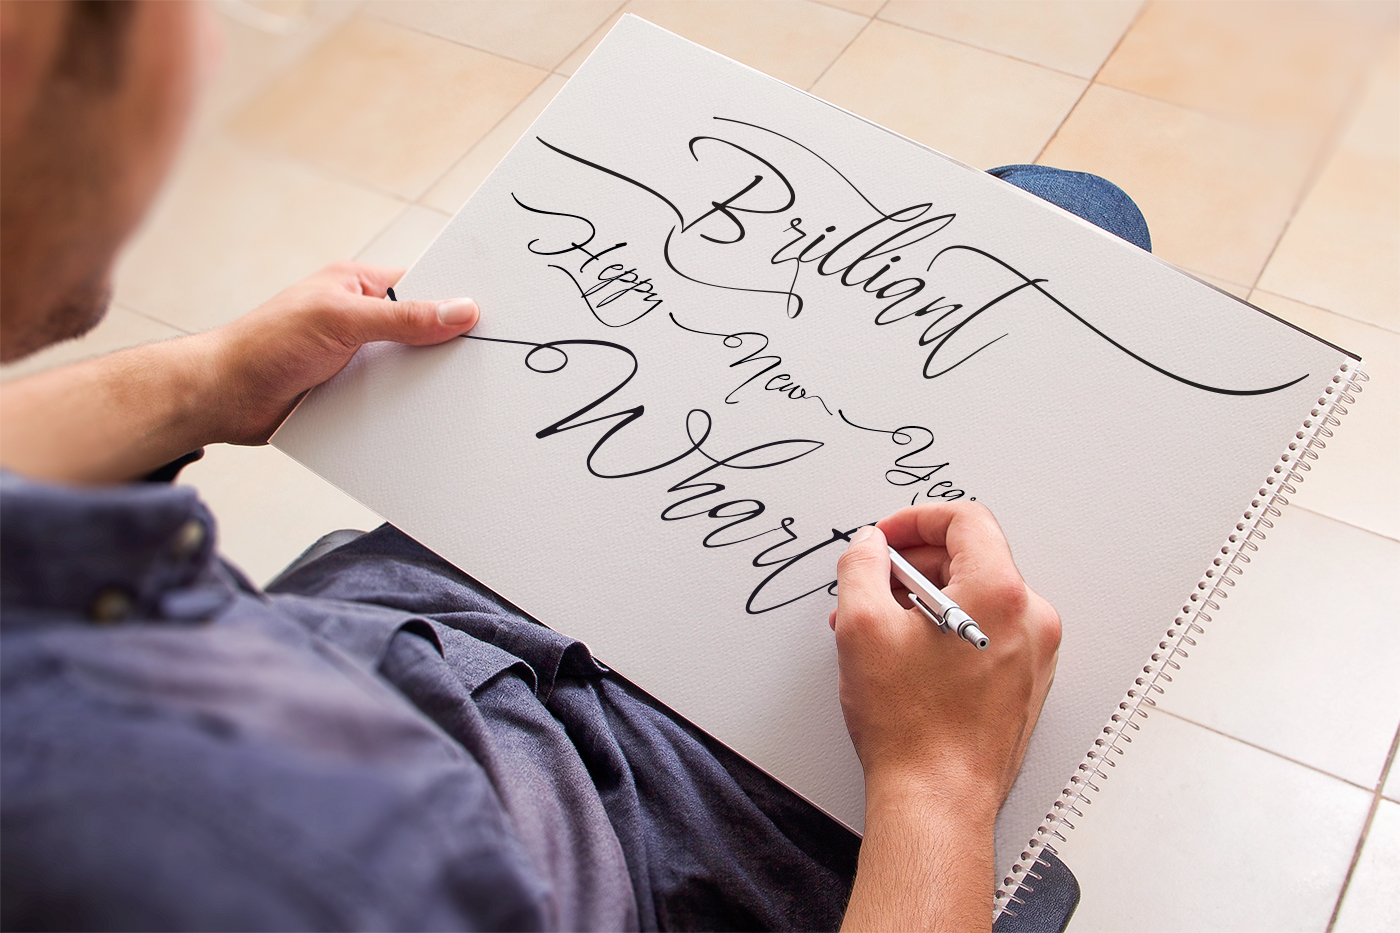 Brilliant
Heppy New Year
Whart